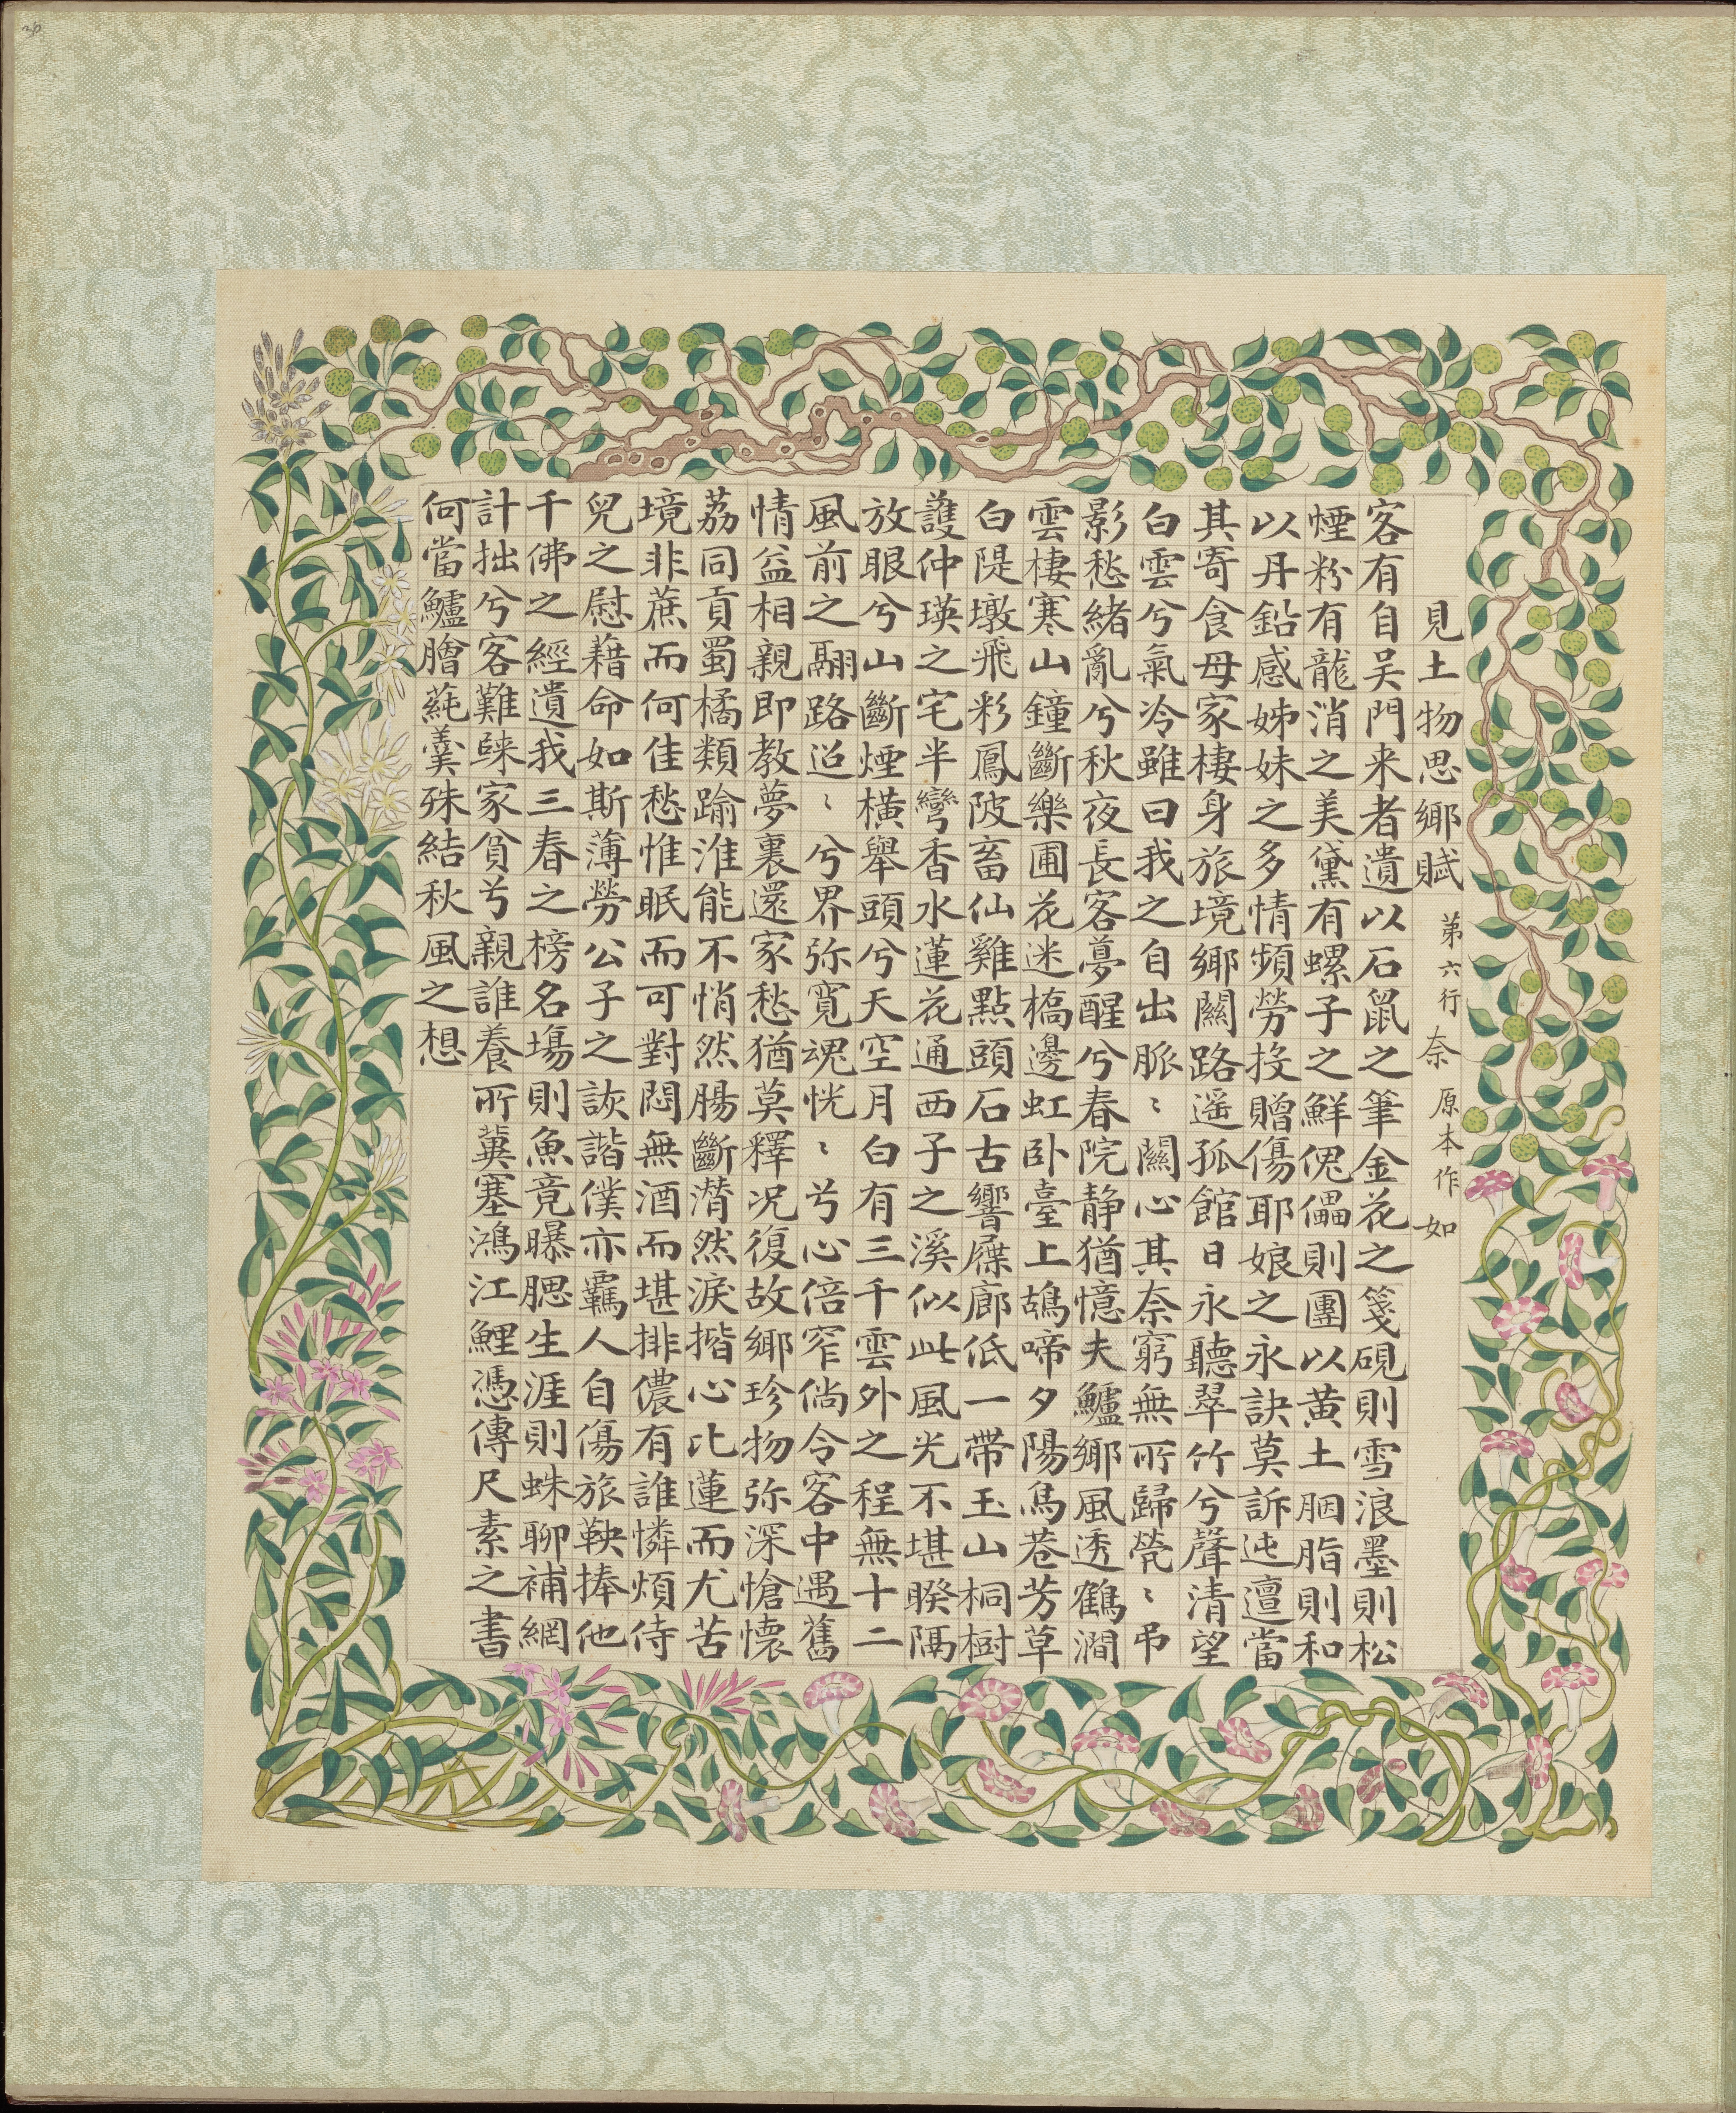 見土物思鄉賦 弟六行 奈 原本作 如
客有自吴門来者遺以石鼠之筆金花之箋硯則雪浪墨則松
煙粉有龍消之美黛有螺子之鮮傀儡則團以黄土胭脂則和
以丹鉛感姊妹之多情頻勞投贈傷耶娘之永訣莫訴迍邅當
其寄食母家棲身旅境鄉關路遥孤館日永聽翠竹兮聲清望
白雲兮氣冷雖曰我之自出脈〻關心其奈窮無所歸煢〻弔
影愁緒亂兮秋夜長客夢醒兮春院静猶憶夫鱸鄉風透鶴澗
雲棲寒山鐘斷樂圃花迷橋邊虹卧臺上鴣啼夕陽馬巷芳草
白隄墩飛彩鳳陂畜仙雞點頭石古響屧廊低一帶玉山桐樹
護仲瑛之宅半彎香水蓮花通西子之溪似此風光不堪睽隔
放眼兮山斷煙橫舉頭兮天空月白有三千雲外之程無十二
風前之翮路迢〻兮界弥寬魂恍〻兮心倍窄倘令客中遇舊
情益相親即教夢裏還家愁猶莫釋况復故鄉珍物弥深愴懷
荔同貢蜀橘類踰淮能不悄然腸斷潸然淚揩心比蓮而尤苦
境非蔗而何佳愁惟眠而可對悶無酒而堪排儂有誰憐煩侍
兒之慰藉命如斯薄勞公子之詼諧僕亦羈人自傷旅鞅捧他
千佛之經遺我三春之榜名場則魚竟曝腮生涯則蛛聊補網
計拙兮客難歸家貧兮親誰養所冀塞鴻江鯉憑傳尺素之書
何當鱸膾蒓羹殊結秋風之想